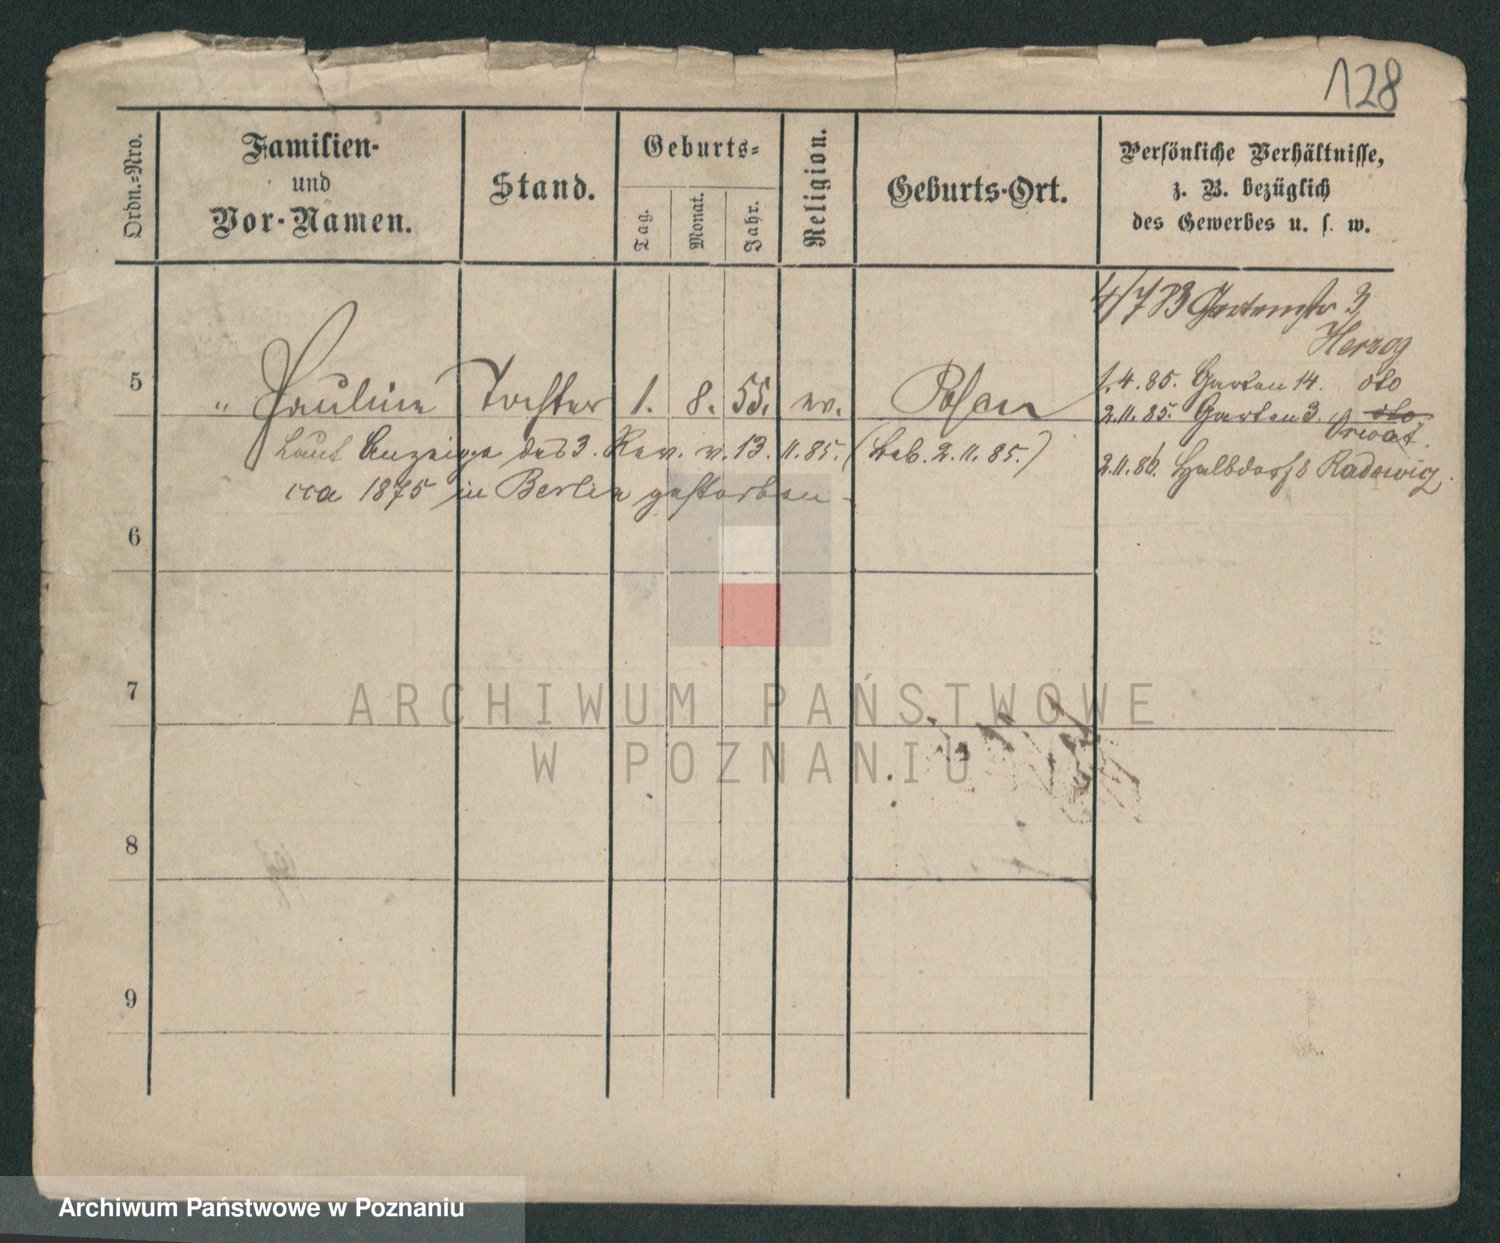 128
Ordn.=Nro.
Familien-
und
Vor-Namen.
Stand.
Geburts=
Tag.
Monat.
Jahr.
Religion.
Geburts-Ort.
Persönliche Verhältnisse,
z. B. bezüglich
des Gewerbes u. s. w.
4/7 83 Gartenstr 3
Herzog
5
" Pauline
Tochter
1.
8.
55.
ev.
Posen
1.4.85. Garten 14. oto
2.11.85. Garten 3. oto
Privat.
Laut Anzeige des 3. Rev. v. 13.11.85. (Leb. 2.11.85.)
cca 1875 in Berlin gestorben -
2.11.86. Halbdorf 8 Radowicz.
6
7
8
9
ARCHIWUM PAŃSTWOWE
W POZNANIU
Archiwum Państwowe w Poznaniu